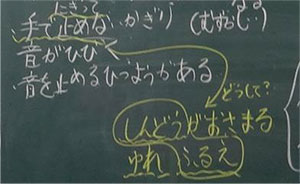 にぎって
手で止めないかぎり
(むずかし
音がひびく
音を止めるひつようがある
どうして?
しんどうがおさまる
ゆれ ふるえ